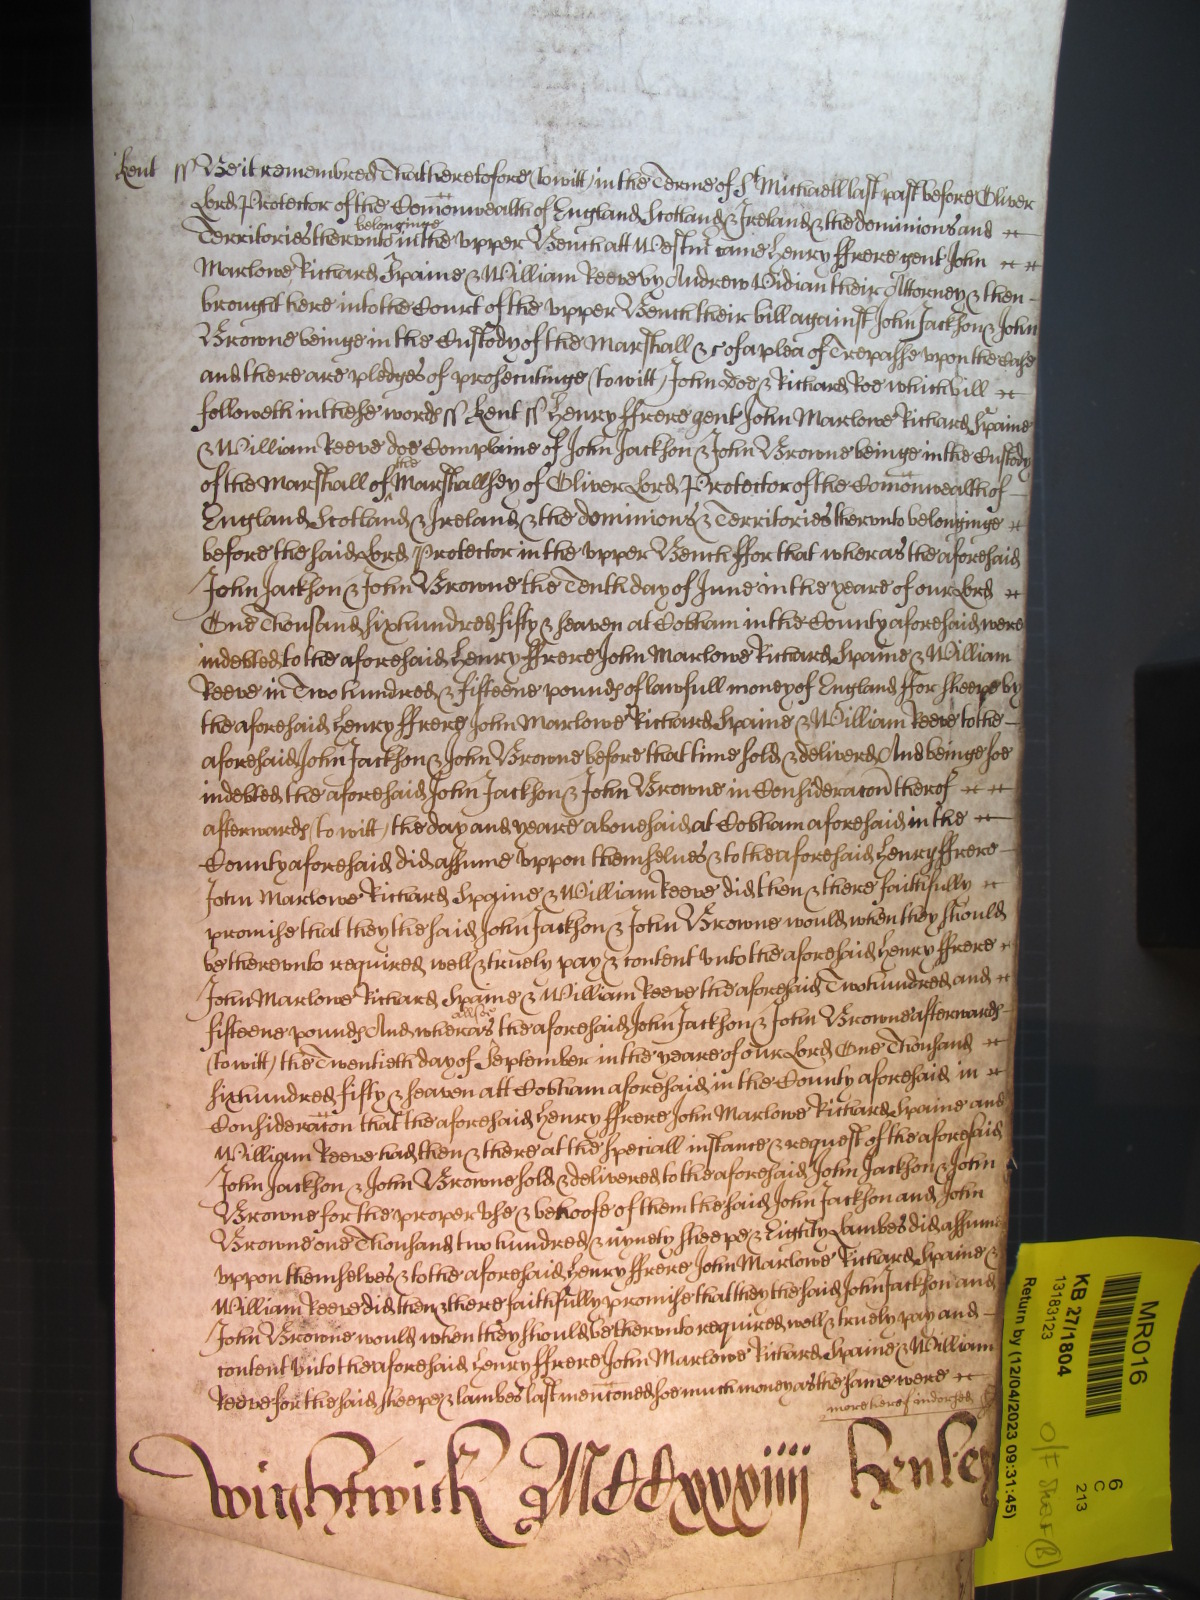 Kent ss Be it remembred That heretofore (to witt) in the Terme of St Michaell last past before Oliver
Lord Protector of the Comonwealth of England Scotland & Ireland & the dominions and
Territories therunto belonginge in the upper Bench att Westm came Henry ffrere gent John
Marlowe Richard Spaine & William Reeve by Andrew Vidian their Attorney & then
brought here into the Court of the upper Bench their bill against John Jackson & John
Browne beinge in the Custody of the Marshall &c of a plea of Trepasse uppon the Case
and there are pledges of prosecutinge (to witt) John Doe & Richard Roe which bill
followeth in these words ss Kent ss Henry ffrere gent John Marlowe Richard Spaine
& William Reeve doe Complaine of John Jackson & John Browne beinge in the Custody
of the Marshall of the Marshallsey of Oliver Lord Protector of the Comonwealth of
England Scotland & Ireland & the dominions & Territories therunto belonginge
before the said Lord Protector in the upper Bench ffor that wheras the aforesaid
John Jackson & John Browne the Tenth day of June in the yeare of our Lord
One Thousand six hundred fifty & seaven at Cobham in the County aforesaid were
indebted to the aforesaid Henry ffrere John Marlowe Richard Spaine & William
Reeve in Two hundred & fifteene pounds of lawfull money of England ffor sheepe by
the aforesaid Henry ffrere John Marlowe Richard Spaine & William Reeve to the
aforesaid John Jackson & John Browne before that time sold & deliverd And beinge soe
indebted the aforesaid John Jackson & John Browne in Consideracon therof
afterwards (to witt) the day and yeare abovesaid at Cobham aforesaid in the
County aforesaid did assume uppon themselves & to the aforesaid Henry ffrere
John Marlowe Richard Spaine & William Reeve did then & there faithfully
promise that they the said John Jackson & John Browne would when they should
be therevnto required well & truely pay & content vnto the aforesaid Henry ffrere
John Marlowe Richard Spaine & William Reeve the aforesaid Two hundred and
fifteene pounds And wheras allsoe the aforesaid John Jackson & John Browne afterwards
(to witt) the Twentieth day of September in the yeare of our Lord One Thousand
six hundred fifty & seaven att Cobham aforesaid in the County aforesaid in
Consideracon that the aforesaid Henry ffrere John Marlowe Richard Spaine and
William Reeve had then & there at the speciall instance & request of the aforesaid
John Jackson & John Browne sold & delivered to the aforesaid John Jackson & John
Browne for the proper vse & behoofe of them the said John Jackson and John
Browne one Thousand two hundred & nynety sheepe & Eighty Lambes did assume
vppon themselves & to the aforesaid Henry ffrere John Marlowe Richard Spaine &
William Reeve did then & there faithfully promise that they the said John Jackson and
John Browne would when they should be thervnto required well & truely pay and
content vnto the aforesaid Henry ffrere John Marlowe Richard Spaine & William
Reeve for the said sheepe & lambes last mencioned soe much money as the same were
more hereof indorsed
Wightwick MCCxxxiiij Henley
MR016
KB 27/1804
13183123
Return by (12/04/2023 09:31:45)
6
C
213